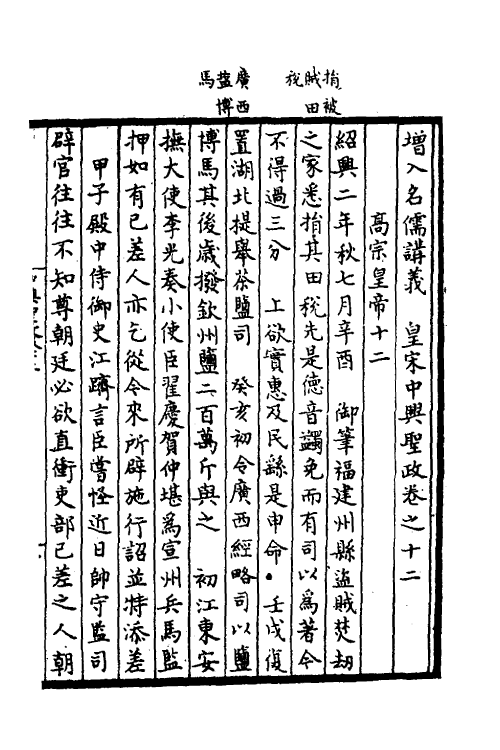 捐被
賊田
稅
廣西
鹽博
馬
增入名儒講義　皇宋中興聖政卷之十二
高宗皇帝十二
紹興二年秋七月辛酉　御筆福建州縣盜賊焚刧
之家悉捐其田稅先是德音蠲免而有司以爲著令
不得過三分　上欲實惠及民繇是申命　壬戌復
置湖北提舉茶鹽司　癸亥初令廣西經略司以鹽
博馬其後歲撥欽州鹽二百萬斤與之　初江東安
撫大使李光奏小使臣翟慶賀仲堪爲宣州兵馬監
押如有已差人亦乞從令來所辟施行詔並特添差
甲子殿中侍御史江躋言臣嘗怪近日帥守監司
辟官往往不知尊朝廷必欲直衝吏部已差之人朝